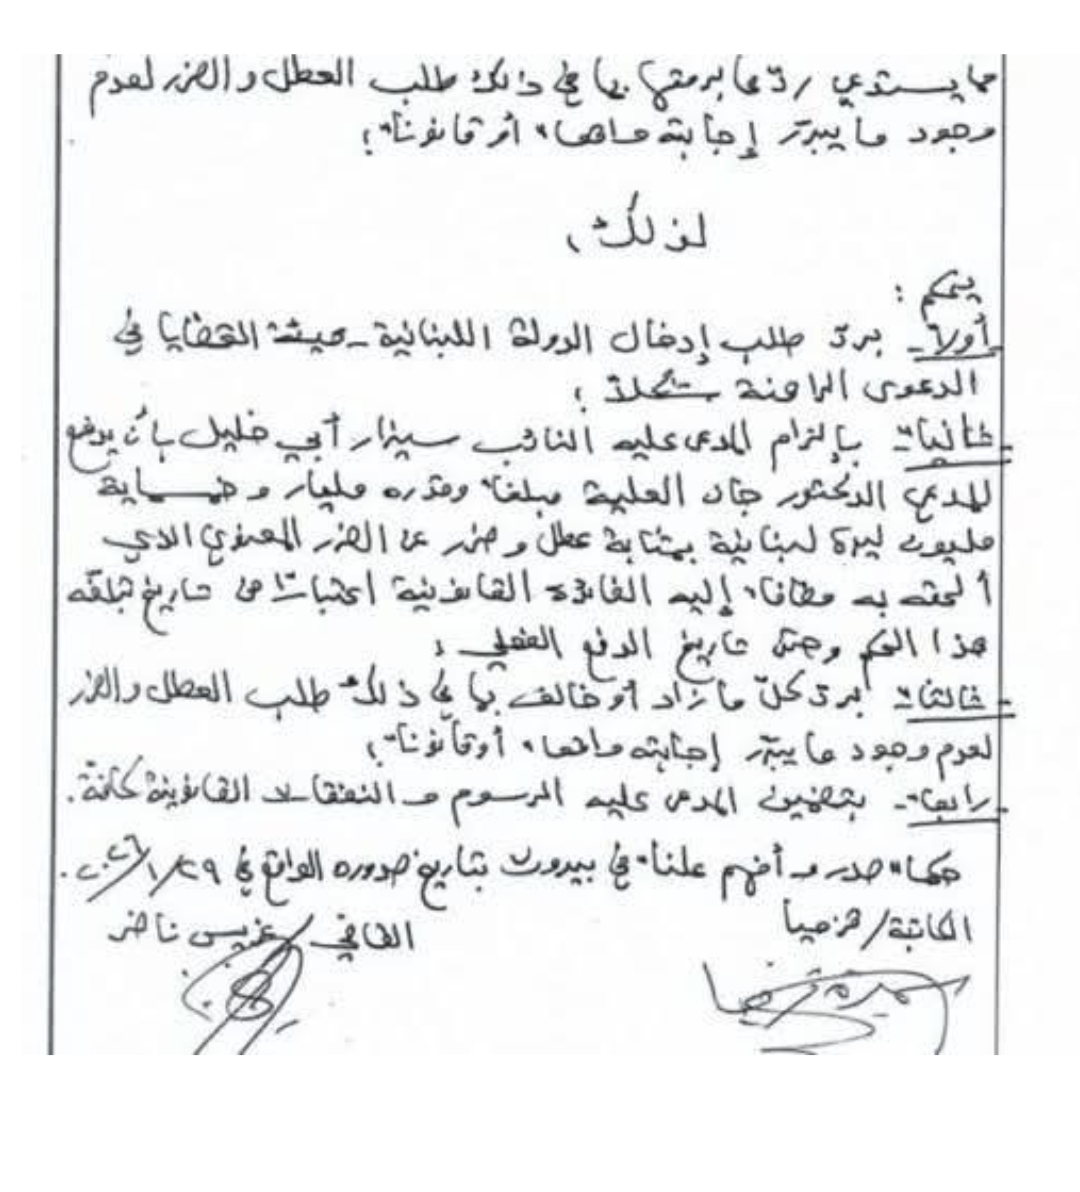 مما يستدعي ردّها برمتها بما في ذلك طلب العطل والضرر لعدم
وجود ما يبرّر إجابته واقعاً أو قانوناً؛
لذلك،
يحكم:
أولاً- بردّ طلب إدخال الدولة اللبنانية - هيئة القضايا في
الدعوى الراهنة شكلاً؛
ثانياً- بإلزام المدعى عليه النائب سيزار أبي خليل بأن يدفع
للمدعي الدكتور جان العلية مبلغاً وقدره مليار وخمسماية
مليون ليرة لبنانية بمثابة عطل وضرر عن الضرر المعنوي الذي
ألحقه به مضافاً إليه الفائدة القانونية اعتباراً من تاريخ تبلّغه
هذا الحكم وحتى تاريخ الدفع الفعلي؛
ثالثاً- بردّ كلّ ما زاد أو خالف بما في ذلك طلب العطل والضرر
لعدم وجود ما يبرّر إجابته واقعاً أو قانوناً؛
رابعاً- بتضمين المدعى عليه الرسوم والنفقات القانونية كافّة.
حكماً صدر وأفهم علناً في بيروت بتاريخ صدوره الواقع في ٢٩/١/٢٠٢٦.
الكاتبة/
القاضي/